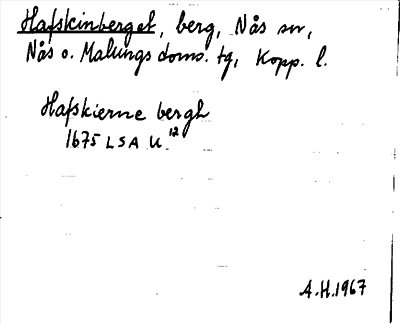 Hafskinberget, berg, Nås sn,
Nås o. Malungs doms. tg, Kopp. l.
Hafskierne bergh
1675 LSA U.12
A.H.1967